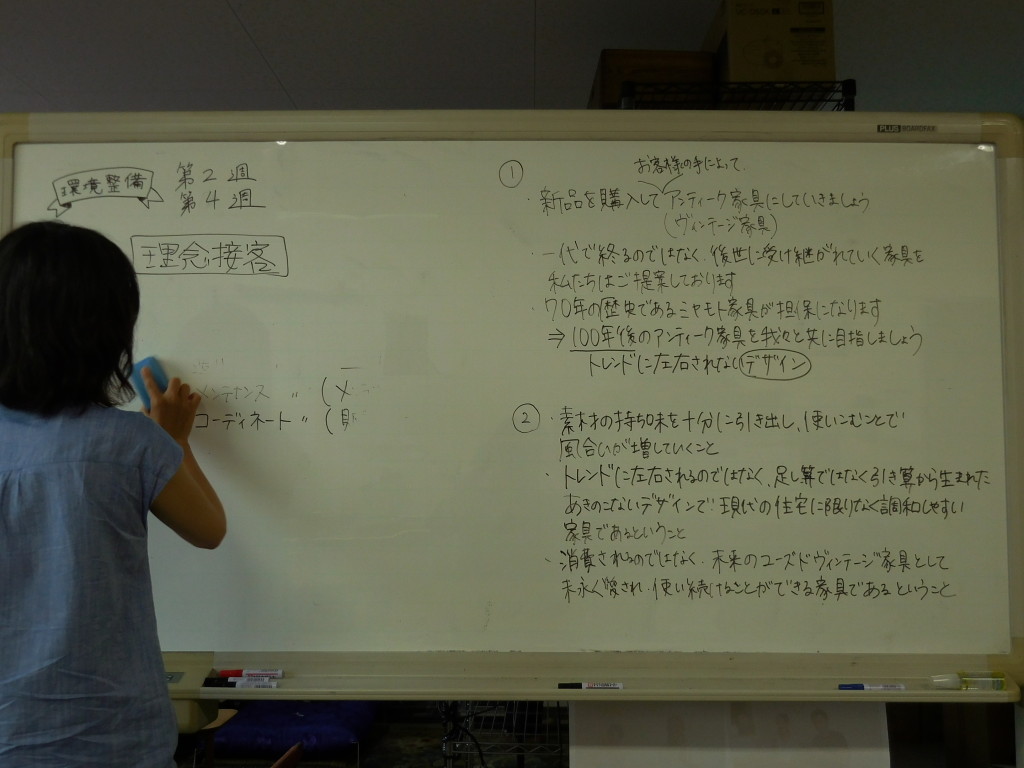 環境整備
第2週
第4週
理念接客
メンテナンス 〃 (メ
コーディネート 〃 (
PLUS BOARDMAN
①
お客様の手によって
・新品を購入してアンティーク家具にしていきましょう
(ヴィンテージ家具)
・一代で終るのではなく、後世に受け継がれていく家具を
私たちはご提案しております
・70年の歴史であるミヤモト家具が担保になります
⇒100年後のアンティーク家具を我々と共に目指しましょう
トレンドに左右されないデザイン
②・素材の持ち味を十分に引き出し、使いこむことで
風合いが増していくこと
・トレンドに左右されるのではなく、足し算ではなく引き算から生まれた
あきのこないデザインで現代の住宅に限りなく調和しやすい
家具であるということ
・消費されるのではなく、未来のユーズドヴィンテージ家具として
末永く愛され、使い続けることができる家具であるということ